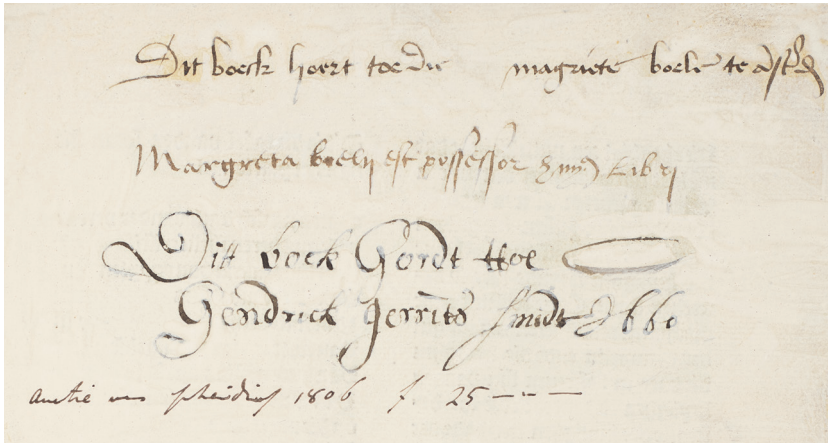 Dit boeck hoert toe die magriete boele te
Margreta boelij est possessor Libri
Ditt boek Hordt ttoe
Hendrick gerrits smidt 1660
auctie van 1806 f 25 ---